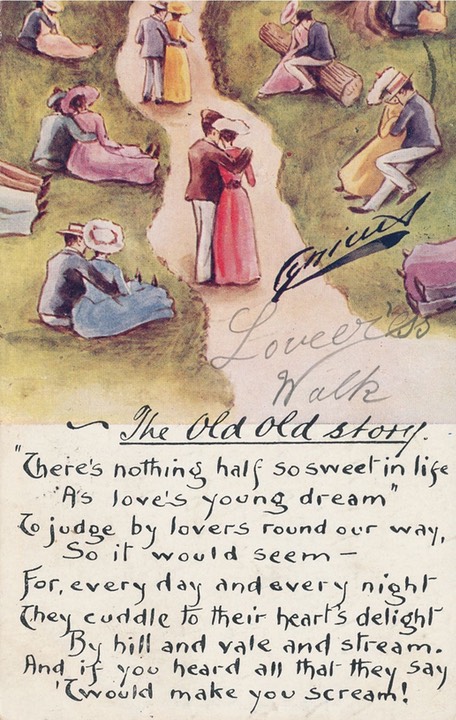 Cynicus
Loveer's
Walk
~ The Old Old story.
"There's nothing half so sweet in life
'As love's young dream"
To judge by lovers round our way,
So it would seem —
For, every day and every night
They cuddle to their heart's delight
By hill and vale and stream.
And if you heard all that they say
'Twould make you scream!